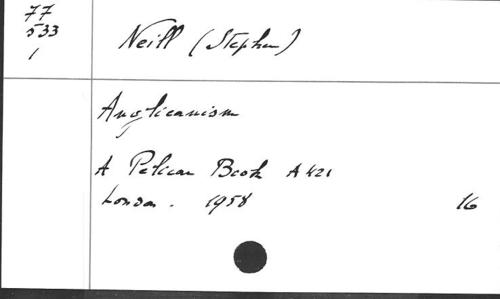 77
533
1
Neill (Stephen)
Anglicanism
A Pelican Book A421
London. 1958
16